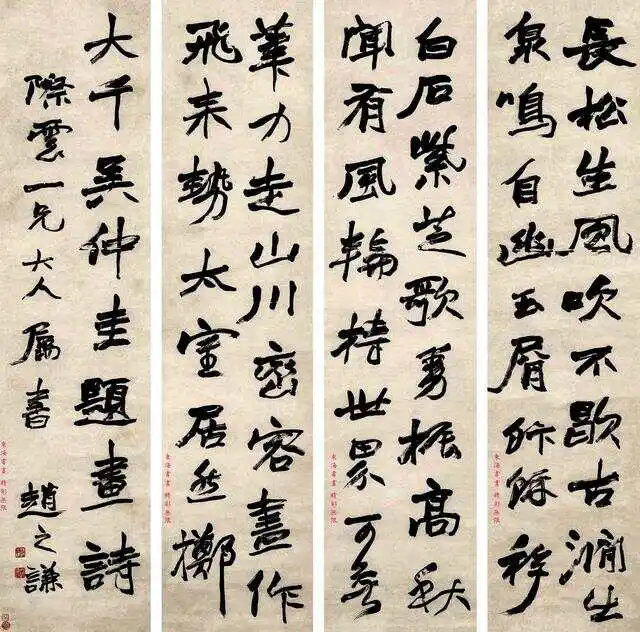 長松生風吹不歇古澗出
泉鳴自幽玉屑移
白石紫芝歌振高秋
聞有風輪持世界可無
筆力走山川巒容盡作
飛來勢太室居然擲
大千吳仲圭題畫詩
際雲一兄大人屬書 趙之謙